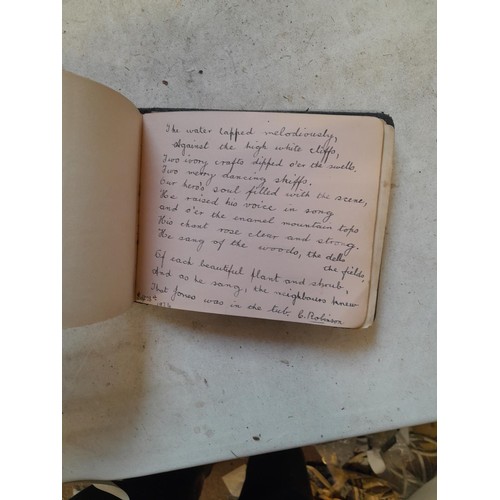 The water lapped melodiously,
Against the high white cliffs,
Two ivory crafts dipped o'er the swells.
Two merry dancing skiffs.
Our hero's soul filled with the scene,
He raised his voice in song
and o'er the enamel mountain tops
His chant rose clear and strong.
He sang of the woods, the dells
the fields,
Of each beautiful plant and shrub,
And as he sang, the neighbours knew
That Jones was in the tub. C. Robinson